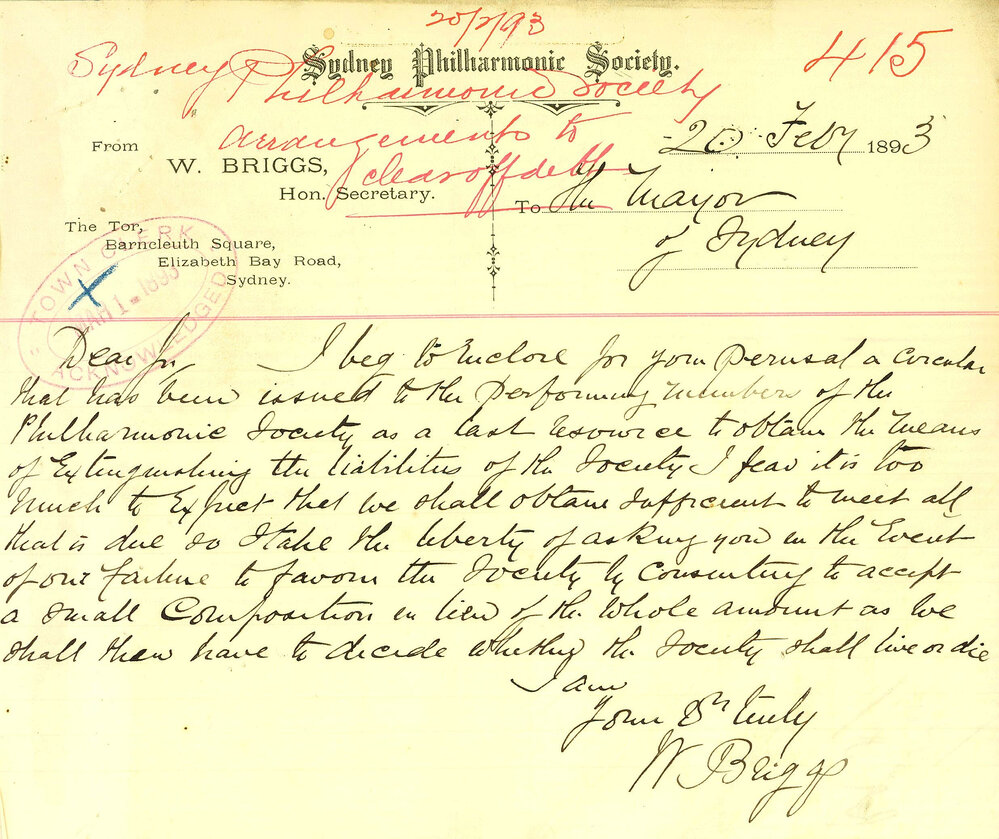 20/2/93
Sydney Philharmonic Society.
415
Sydney Philharmonic Society
arrangements to
clear off debt
From
W. BRIGGS,
Hon. Secretary.
20 Feby 1893
To The Mayor
of Sydney
The Tor,
Barncleuth Square,
Elizabeth Bay Road,
Sydney.
TOWN CLERK
MAR 1 - 1893
ACKNOWLEDGED
Dear Sir, I beg to Enclose for your perusal a Circular
that has been issued to the Performing Members of the
Philharmonic Society as a last resource to obtain the Means
of Extinguishing the liabilities of the Society I fear it is too
Much to Expect that we shall obtain sufficient to meet all
that is due so I take the liberty of asking you in the Event
of our failure to favour the Society by Consenting to accept
a small Composition in lieu of the Whole amount as we
shall then have to decide whether the Society shall live or die
I am
Your Dr truly
W Briggs